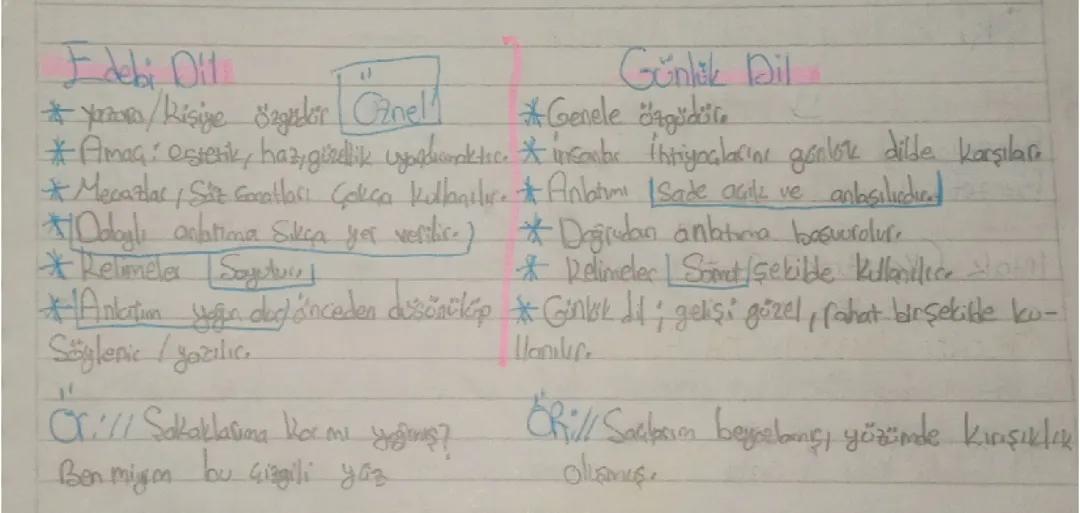 Edebi Dil
* yazara/kişiye özgüdür Öznel
* Amaç: estetik, haz, güzellik uyandırmaktır.
* Mecazlar, Söz Sanatları Çokça kullanılır.
* Dolaylı anlatıma sıkça yer verilir.
* Kelimeler Soyuttur
* Anlatım yoğun dur/önceden düşünülüp
Söylenir / yazılır.
Ör:// Şakaklarıma kar mı yağmış?
Ben miyim bu çizgili yüz
Günlük Dil
* Genele özgüdür.
* insanlar ihtiyaçlarını günlük dilde karşılar.
* Anlatımı Sade açık ve anlaşılırdır.
* Doğrudan anlatıma başvurulur.
* Kelimeler Somut şekilde kullanılır.
* Günlük dil; gelişi güzel, rahat bir şekilde ku-
llanılır.
ÖR:// Saçlarım beyazlamış, yüzümde kırışıklık
oluşmuş.